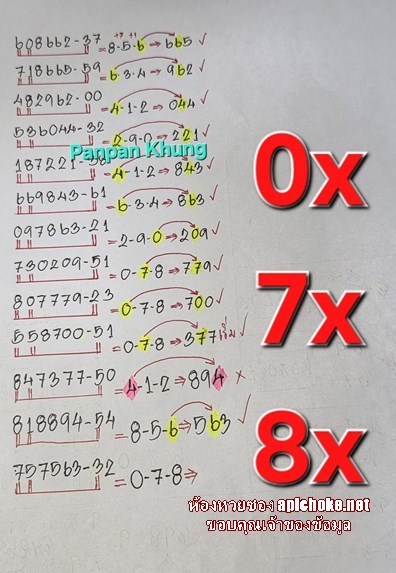 608662-37 = 8-5-6 ⇒ 665 ✓
718665-59 = 6-3-4 ⇒ 962 ✓
482962-00 = 4-1-2 ⇒ 044 ✓
536044-32 = 2-9-0 ⇒ 221 ✓
Panpan Khung
= 4-1-2 ⇒ 843 ✓
669843-61 = 6-3-4 ⇒ 863 ✓
097863-21 = 2-9-0 ⇒ 209 ✓
730209-51 = 0-7-8 ⇒ 779 ✓
807779-23 = 0-7-8 ⇒ 700 ✓
558700-51 = 0-7-8 ⇒ 377 เริ่ม ✓
847377-50 = 4-1-2 ⇒ 894 ×
818894-54 = 8-5-6 ⇒ 563 ✓
757563-32 = 0-7-8 ⇒
0x
7x
8x
ห้องหวยซอง apichoke.net
ขอบคุณเจ้าของข้อมูล